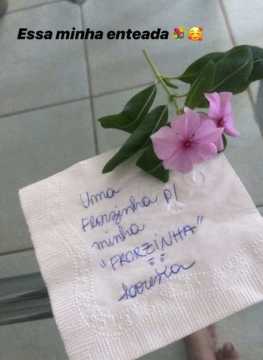 Essa minha enteada 💐🥰
Uma
Florzinha p/
minha
"FRORZINHA"